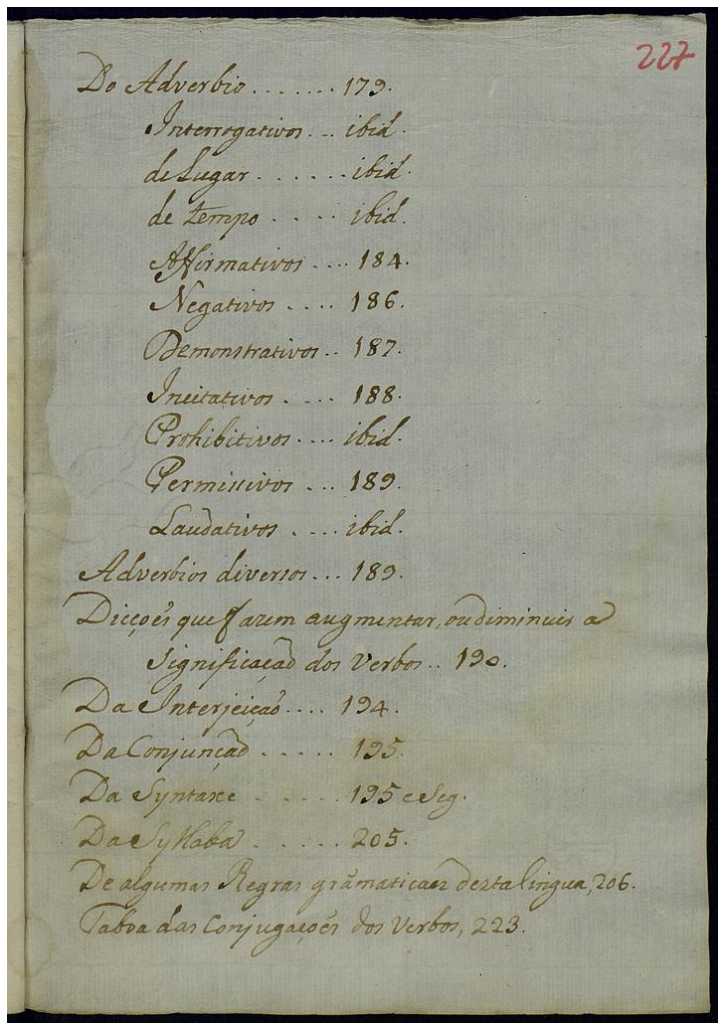 227
Do Adverbio . . . . . . . 179.
Interrogativos . . . ibid.
de Lugar . . . . . . . ibid.
de tempo . . . . . ibid.
Affirmativos . . . . 184.
Negativos . . . . 186.
Demonstrativos . . 187.
Incitativos . . . . 188.
Prohibitivos . . . . ibid.
Permissivos . . . 189.
Laudativos . . . . ibid.
Adverbios diversos . . . 189.
Dicçoẽs que fazem augmentar, ou diminuir a
Significaçaõ dos Verbos . . 190.
Da Interjeiçaõ . . . . 194.
Da Conjunçaõ . . . . . 195.
Da Syntaxe . . . . . . 195 e Seg.
Da Syllaba . . . . . . 205.
De algumas Regras gramaticaes desta lingua, 206.
Taboa das Conjugaçoẽs dos Verbos, 223.